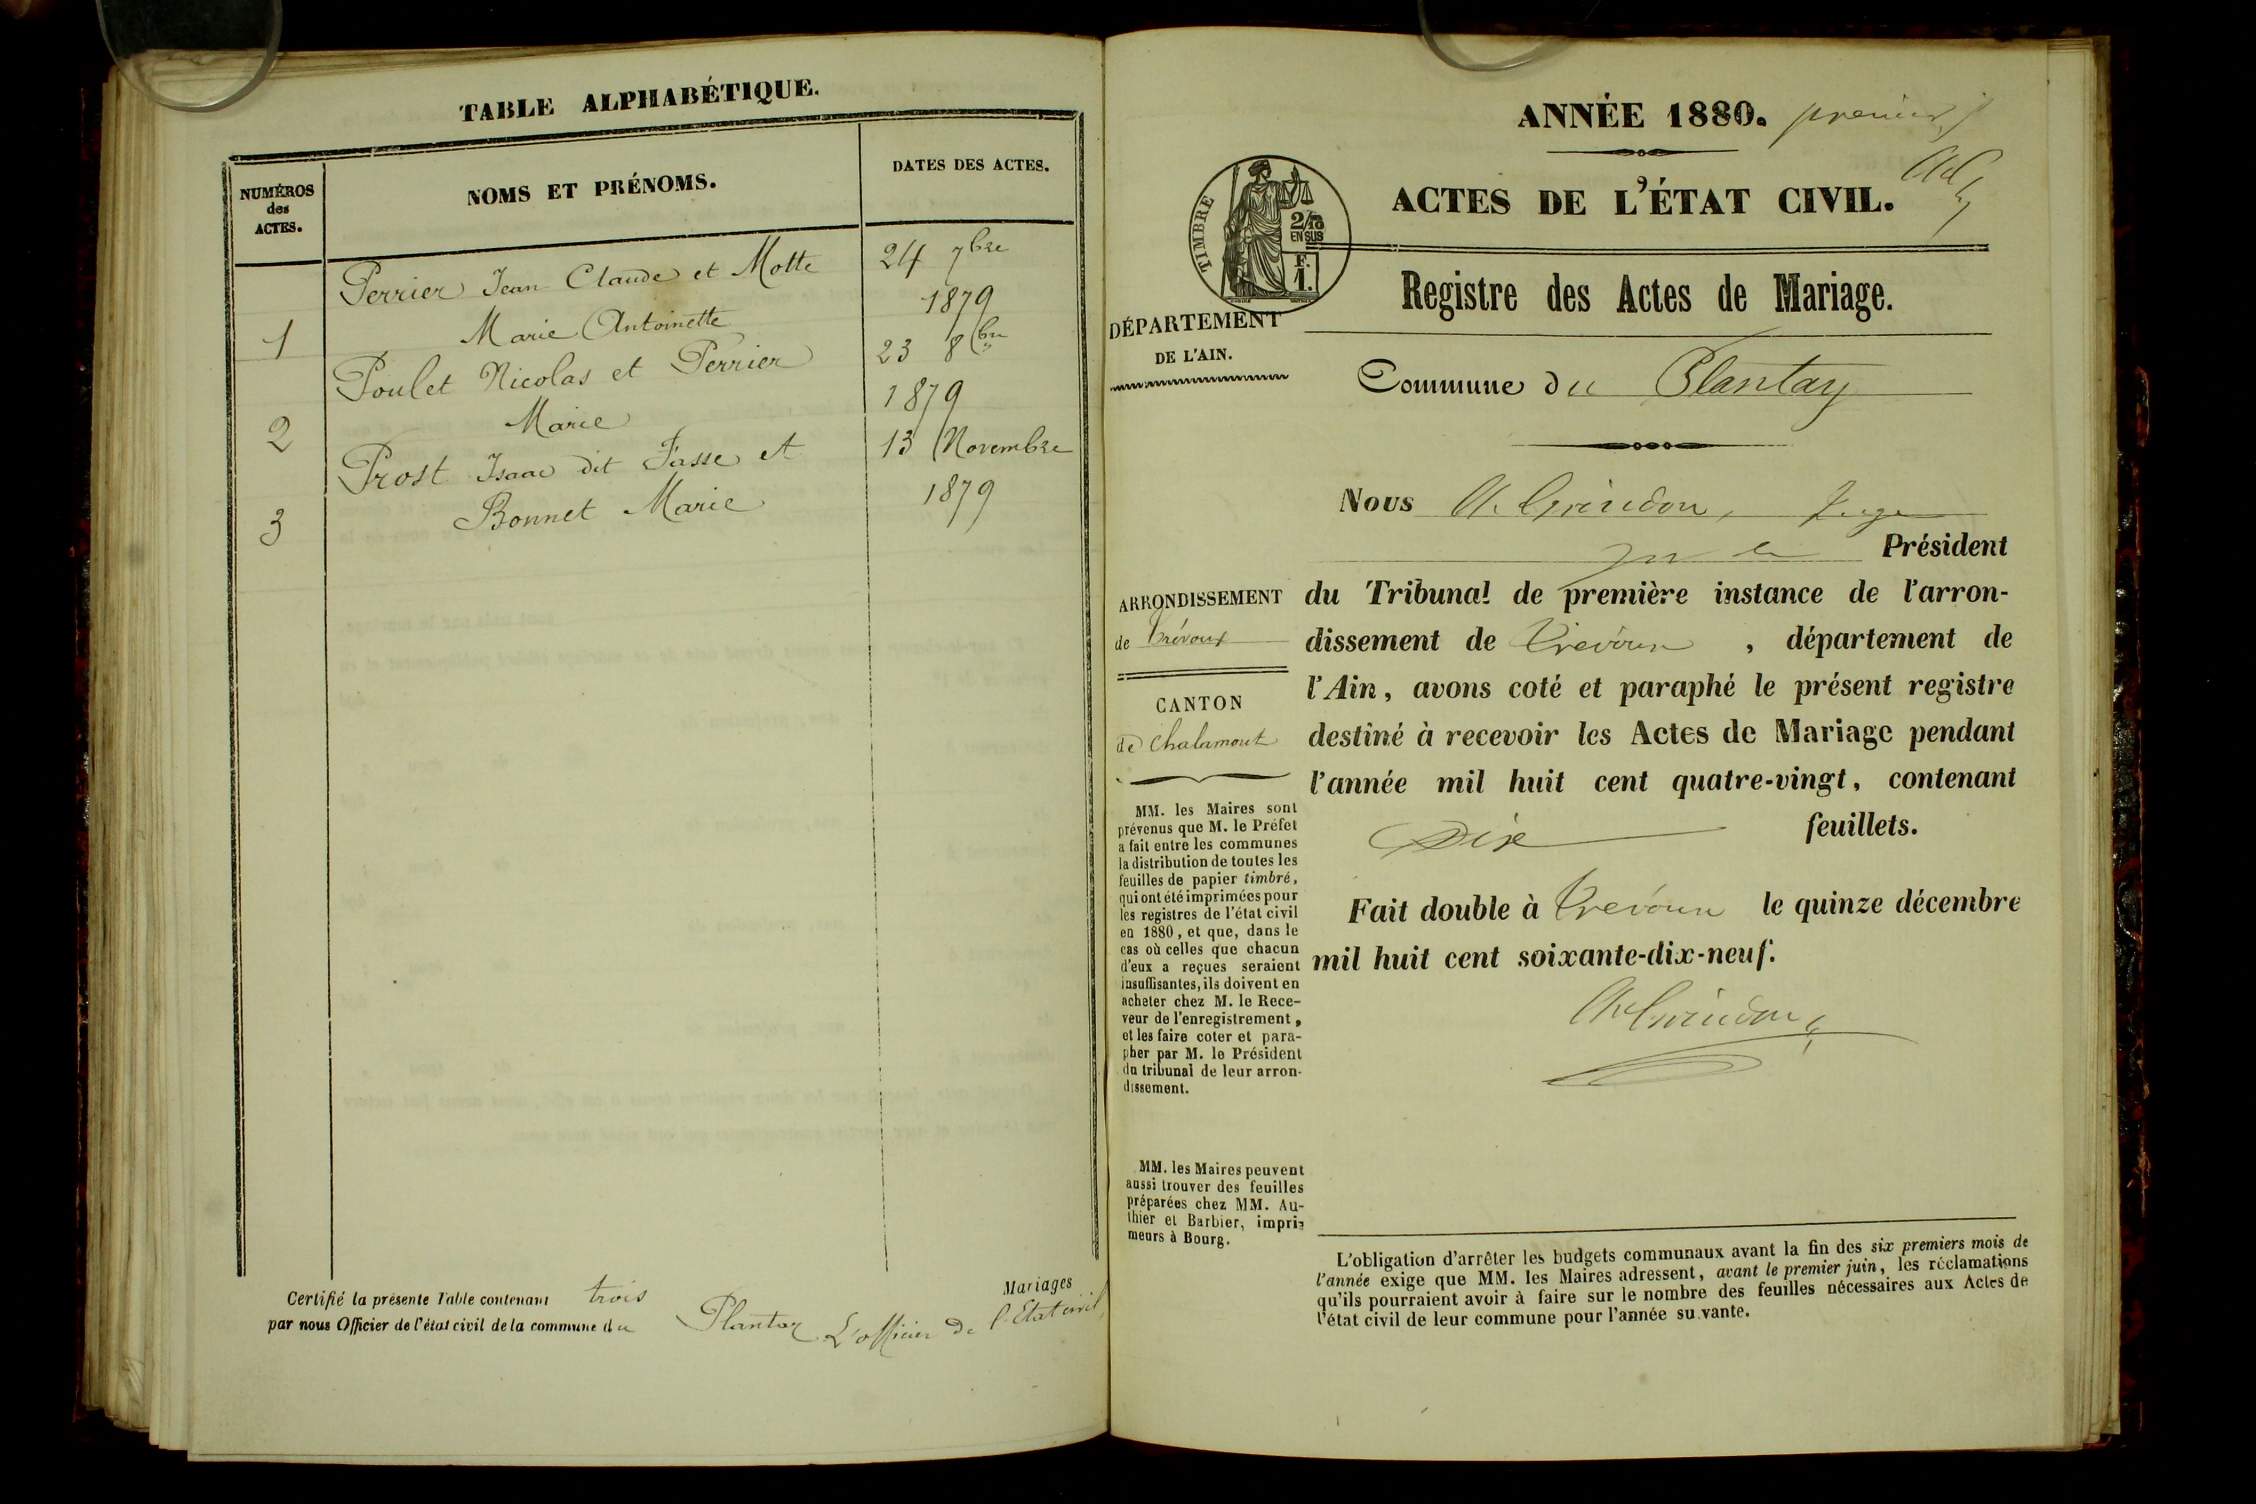 TABLE ALPHABÉTIQUE.
NUMÉROS
des
ACTES.
NOMS ET PRÉNOMS.
DATES DES ACTES.
Perrier Jean Claude et Motte
24 7bre
1879
1
Marie Antoinette
Poulet Nicolas et Perrier
23 8bre
1879
2
Marie
Prost Isaac dit Fasse et
13 Novembre
1879
3
Bonnet Marie
Certifié la présente Table contenant trois Mariages
par nous Officier de l'état civil de la commune du Plantay L'officier de l'Etat civil
ANNÉE 1880. premier
ACTES DE L'ÉTAT CIVIL.
TIMBRE
2/10
EN SUS
F.
1.
Registre des Actes de Mariage.
DÉPARTEMENT
DE L'AIN.
Commune du Plantay
Nous Juge
Président
ARRONDISSEMENT
de Trévoux
CANTON
de Chalamont
du Tribunal de première instance de l'arron-
dissement de Trevoux , département de
l'Ain, avons coté et paraphé le présent registre
destiné à recevoir les Actes de Mariage pendant
l'année mil huit cent quatre-vingt, contenant
Dix feuillets.
Fait double à Trevoux le quinze décembre
mil huit cent soixante-dix-neuf.
MM. les Maires sont
prévenus que M. le Préfet
a fait entre les communes
la distribution de toutes les
feuilles de papier timbré,
qui ont été imprimées pour
les registres de l'état civil
en 1880, et que, dans le
cas où celles que chacun
d'eux a reçues seraient
insuffisantes, ils doivent en
acheter chez M. le Rece-
veur de l'enregistrement,
et les faire coter et para-
pher par M. le Président
du tribunal de leur arron-
dissement.
MM. les Maires peuvent
aussi trouver des feuilles
préparées chez MM. Au-
thier et Barbier, impri-
meurs à Bourg.
L'obligation d'arrêter les budgets communaux avant la fin des six premiers mois de
l'année exige que MM. les Maires adressent, avant le premier juin, les réclamations
qu'ils pourraient avoir à faire sur le nombre des feuilles nécessaires aux Actes de
l'état civil de leur commune pour l'année su vante.